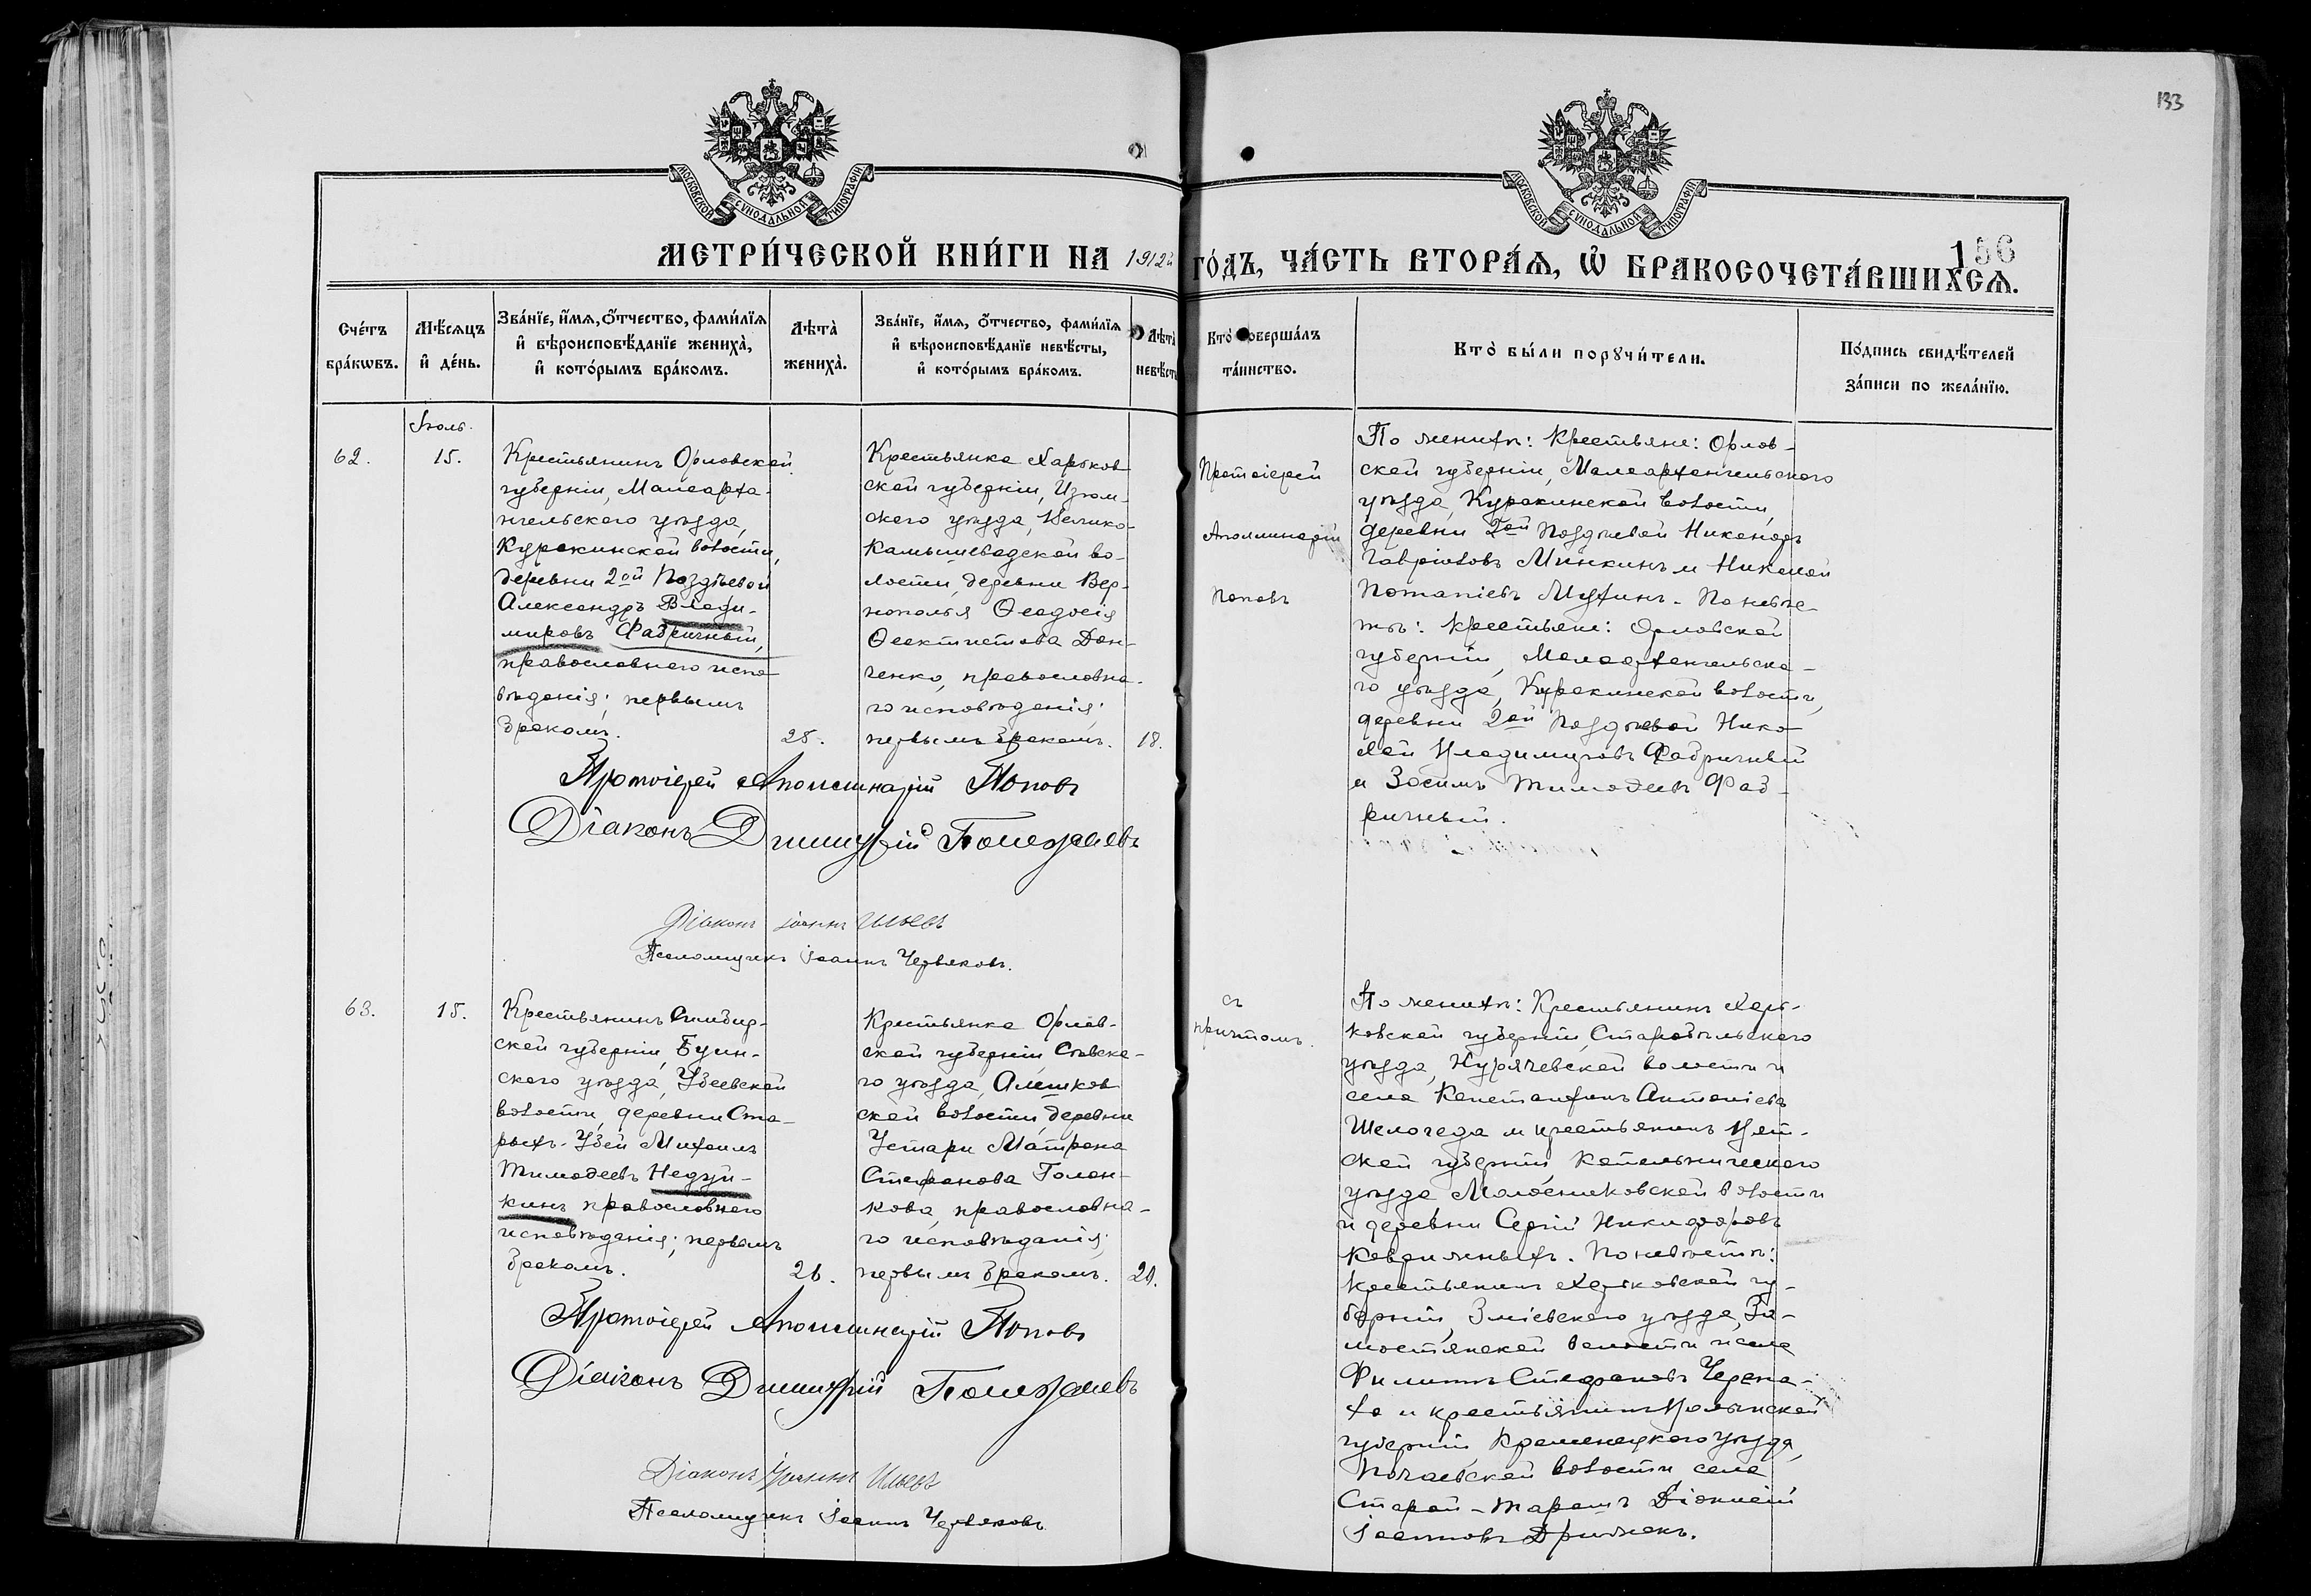 133
МОСКОВСКОЙ СѴНОДАЛЬНОЙ ТИПОГРАФІИ
МОСКОВСКОЙ СѴНОДАЛЬНОЙ ТИПОГРАФІИ
МЕТРИ́ЧЕСКОЙ КНИ́ГИ НА 1912й
ГО́ДЪ, ЧА́СТЬ ВТОРА́Ѧ, Ѡ҆ БРАКОСОЧЕТА́ВШИХСѦ.
156
Сче́тъ бра́кѡвъ.
Мѣ́сяцъ и҆ де́нь.
Зва́нїе, и҆́мя, ѻ҆́тчество, фами́лїя и҆ вѣроисповѣ́данїе жениха̀, и҆ кото́рымъ бра́комъ.
Лѣта̀ жениха̀.
Зва́нїе, и҆́мя, ѻ҆́тчество, фами́лїя и҆ вѣроисповѣ́данїе невѣ́сты, и҆ кото́рымъ бра́комъ.
Лѣта̀ невѣ́сты
Кто̀ соверша́лъ та́инство.
Кто̀ бы́ли порꙋчи́тели.
По́дпись свидѣ́телей за́писи по жела́нїю.
Іюль.
62.
15.
Крестьянинъ Орловской
губерніи, Малоарха-
нгельского уѣзда,
Куракинской волости,
деревни 2ой Поздѣевой
Александръ Влади-
мировъ Фабричный,
православного испо-
вѣданія; первымъ
бракомъ.
28.
Крестьянка Харьков-
ской губерніи, Изюм-
ского уѣзда, Велико-
камышевадской во-
лости, деревни Вер-
нополья Ѳеодосія
Ѳеоктистова Дон-
ченко, православна-
го исповѣданія;
первымъ бракомъ.
18.
Протоіерей
Аполлинарій
Поповъ
По женихѣ: крестьяне: Орлов-
ской губерніи, Малоархангельского
уѣзда, Куракинской волости,
деревни 2ой Поздѣевой Никаноръ
Гавріиловъ Минкинъ и Николай
Потапіевъ Мухинъ. По невѣс-
тѣ: крестьяне: Орловской
губерніи, Малоархангельска-
го уѣзда, Куракинской волости,
деревни 2ой Поздѣевой Нико-
лай Владимировъ Фабричный
и Зосимъ Тимофеевъ Фаб-
ричный.
Протоіерей Аполлинарій Поповъ
Діаконъ Димитрій
Діаконъ Іоаннъ Ильевъ
Псаломщикъ Іоаннъ Червяковъ.
63.
15.
Крестьянинъ Симбир-
ской губерніи, Буин-
ского уѣзда, Убеевской
волости, деревни Ста-
рыхъ-Убей Михаилъ
Тимофеевъ Недуй-
кинъ православного
исповѣданія; первымъ
бракомъ.
26.
Крестьянка Орлов-
ской губерніи, Сѣвска-
го уѣзда, Алешков-
ской волости, деревни
Устари Матрона
Стефанова Голен-
кова, православна-
го исповѣданія;
первымъ бракомъ.
20.
съ
причтомъ.
По женихѣ: Крестьянинъ Харь-
ковской губерніи, Старобѣльского
уѣзда, Курячевской волости и
села Константинъ Антоніевъ
Шелогеда и крестьянинъ Вят-
ской губерніи Котельнического
уѣзда волости
и деревни Сергій Никифоровъ
По невѣстѣ:
крестьянинъ Харьковской гу-
берніи, Зміевского уѣзда, За-
мостянской волости и села
Филиппъ Стефановъ Черепа-
ха и крестьянинъ Волынской
губерніи, Кременецкого уѣзда,
Почаевской волости, села
Старой-Таражъ Діонисій
Іоанновъ
Протоіерей Аполлинарій Поповъ
Діаконъ Димитрій
Діаконъ Іоаннъ Ильевъ
Псаломщикъ Іоаннъ Червяковъ.